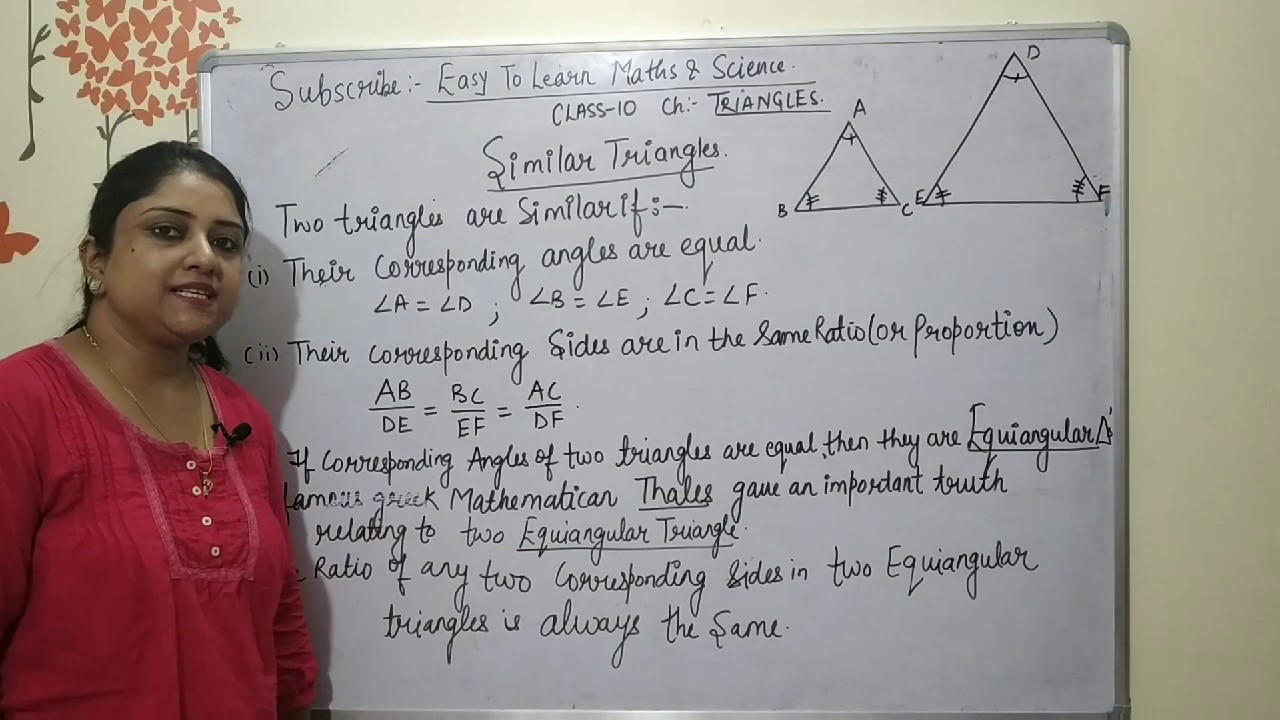 Subscribe:- Easy To Learn Maths & Science.
CLASS-10 Ch:- TRIANGLES.
Similar Triangles.
A
B
C
D
E
F
Two triangles are Similar if:-
(i) Their Corresponding angles are equal.
∠A = ∠D ; ∠B = ∠E ; ∠C = ∠F.
(ii) Their corresponding Sides are in the Same Ratio (or Proportion)
AB/DE = BC/EF = AC/DF.
If Corresponding Angles of two triangles are equal, then they are Equiangular Δ's
famous greek Mathematican Thales gave an important truth
relating to two Equiangular Triangle.
Ratio of any two Corresponding Sides in two Equiangular
triangles is always the Same.